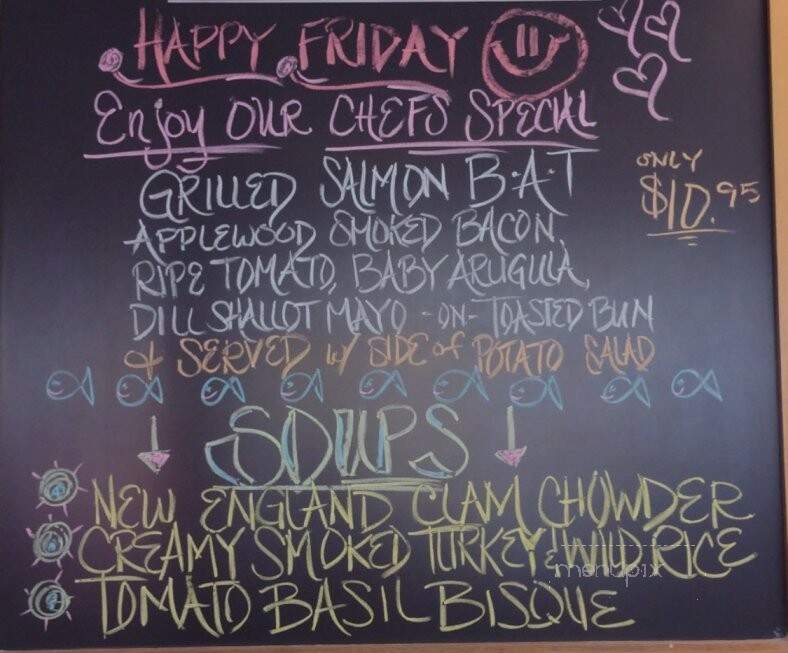 HAPPY FRIDAY
Enjoy OUR CHEFS SPECIAL
GRILLED SALMON B.A.T
ONLY
$10.95
APPLEWOOD SMOKED BACON,
RIPE TOMATO, BABY ARUGULA,
DILL SHALLOT MAYO -ON- TOASTED BUN
& SERVED w/ SIDE of POTATO SALAD
SOUPS
NEW ENGLAND CLAM CHOWDER
CREAMY SMOKED TURKEY & WILD RICE
TOMATO BASIL BISQUE
menupix